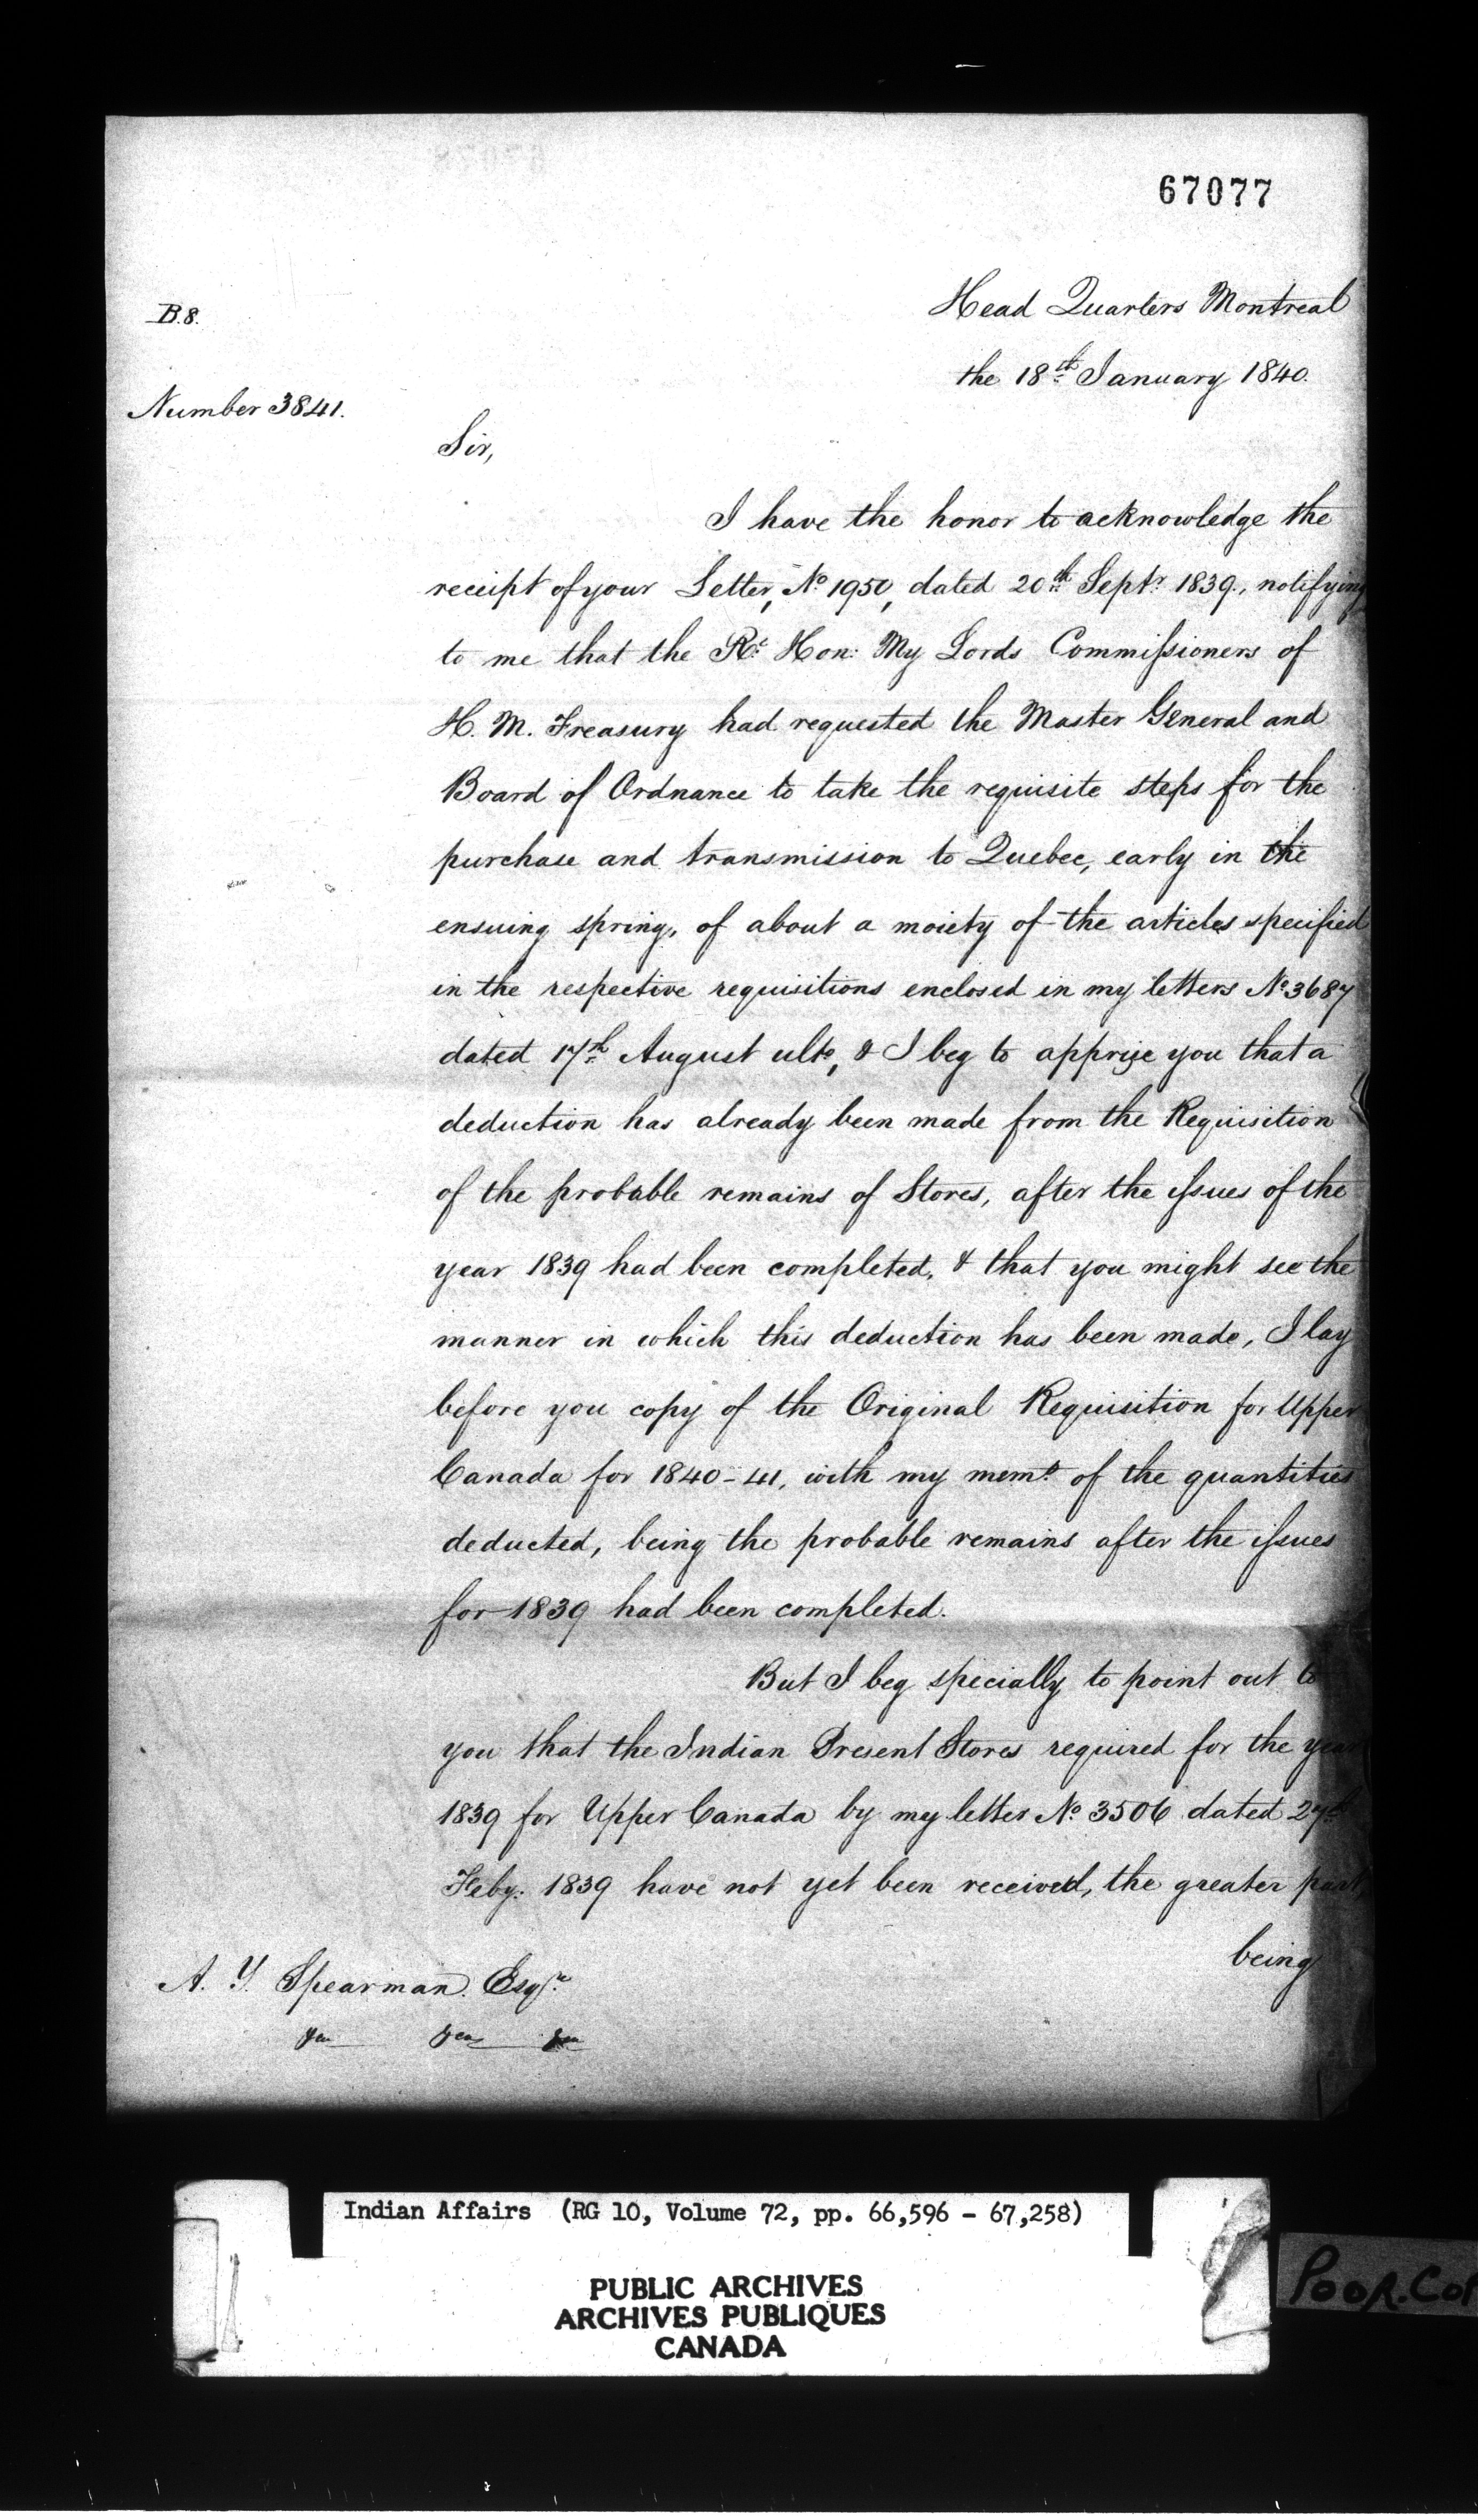 67077
Head Quarters Montreal
B.8.
the 18th January 1840.
Number 3841.
Sir,
I have the honor to acknowledge the
receipt of your Letter, No 1950, dated 20th Septr 1839., notifying
to me that the Rt Hon: My Lords Commissioners of
H. M. Treasury had requested the Master General and
Board of Ordnance to take the requisite steps for the
purchase and transmission to Quebec, early in the
ensuing spring, of about a moiety of the articles specified
in the respective requisitions enclosed in my letters No 3687
dated 17th August ulto, & I beg to apprize you that a
deduction has already been made from the Requisition
of the probable remains of Stores, after the issues of the
year 1839 had been completed, & that you might see the
manner in which this deduction has been made, I lay
before you copy of the Original Requisition for Upper
Canada for 1840-41, with my memo of the quantities
deducted, being the probable remains after the issues
for 1839 had been completed.
But I beg specially to point out to
you that the Indian Present Stores required for the year
1839 for Upper Canada by my letter No 3506 dated 27th
Feby. 1839 have not yet been received, the greater part,
being
A. Y. Spearman. Esqre
Indian Affairs (RG 10, Volume 72, pp. 66,596 - 67,258)
PUBLIC ARCHIVES
ARCHIVES PUBLIQUES
CANADA
POOR.COP